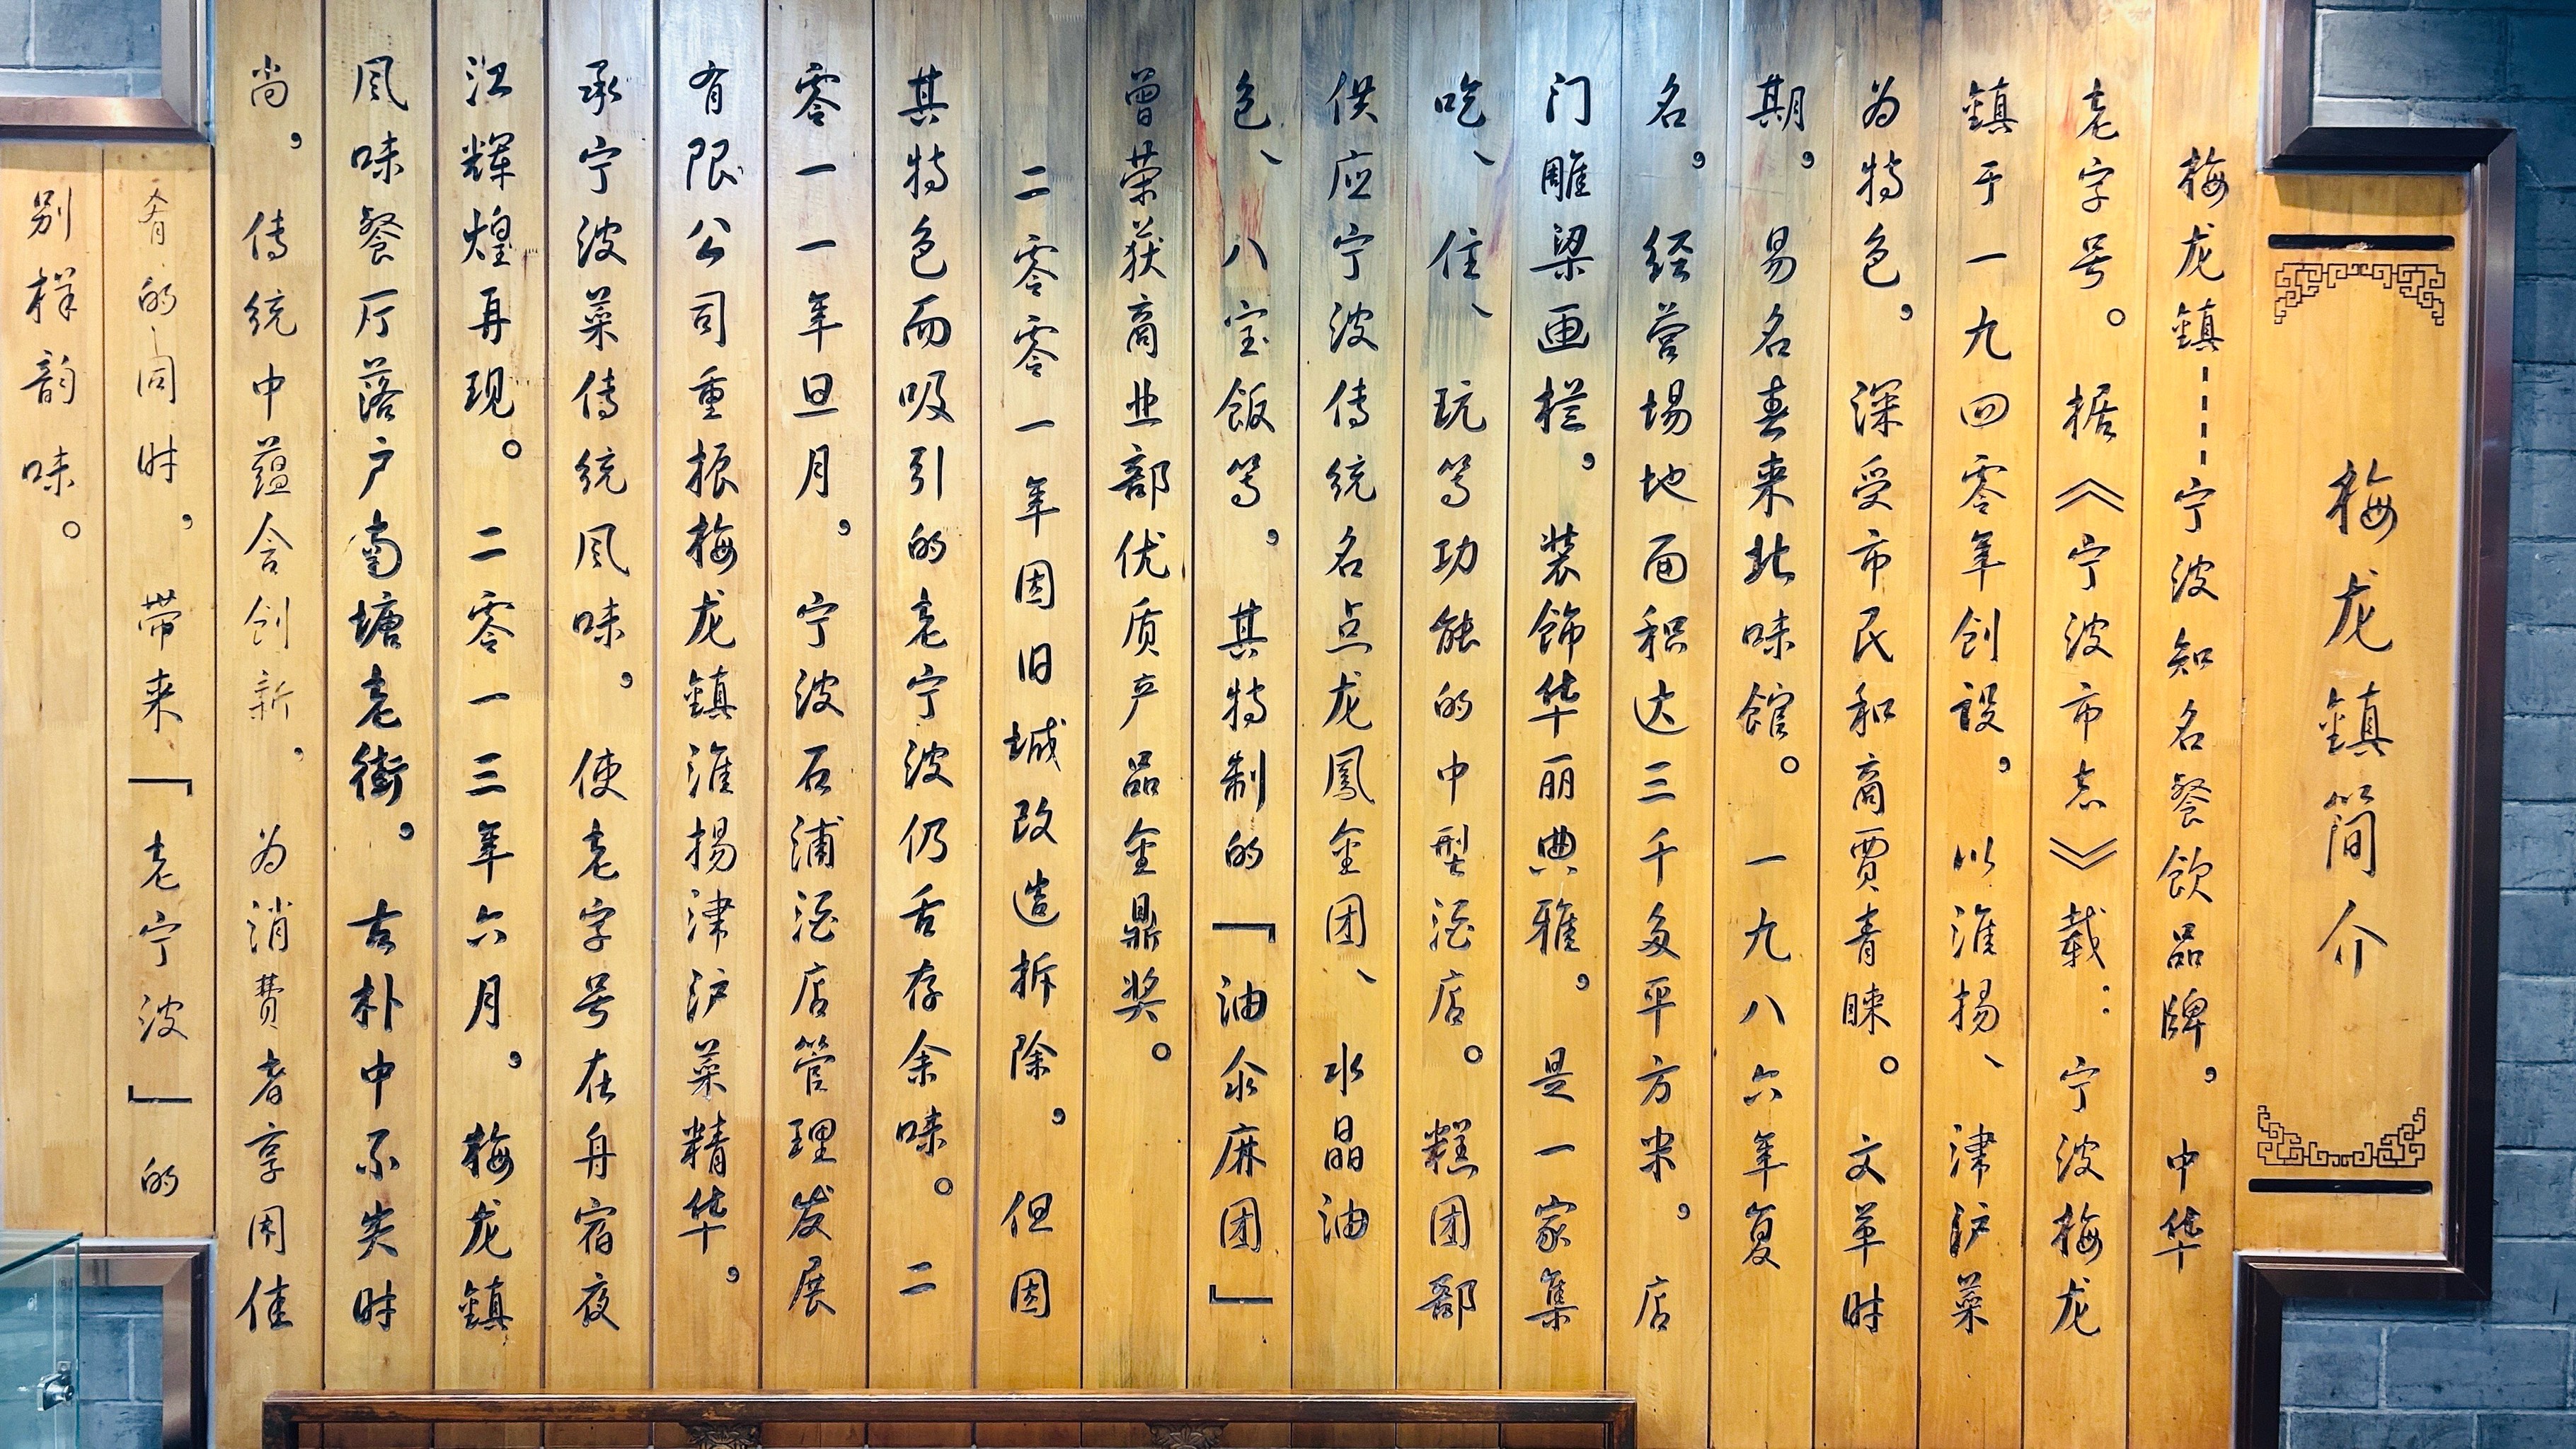 梅龙鎮简介
梅龙鎮……宁波知名餐飲品牌，中华
老字号。据《宁波市志》载：宁波梅龙
鎮于一九四零年创設，以淮揚、津沪菜
为特色，深受市民和商賈青睐。文革时
期，易名春来北味館。一九八六年复
名，经营場地面积达三千多平方米，店
门雕梁画栏，装飾华丽典雅，是一家集
吃、住、玩等功能的中型酒店。糕团部
供应宁波传统名点龙鳳金团、水晶油
包、八宝飯等，其特制的「油氽麻团」
曾荣获商业部优质产品金鼎奖。
二零零一年因旧城改造拆除，但因
其特色而吸引的老宁波仍舌存余味。二
零一一年旦月，宁波石浦酒店管理发展
有限公司重振梅龙鎮淮揚津沪菜精华，
承宁波菜传统风味，使老字号在舟宿夜
江辉煌再现。二零一三年六月，梅龙鎮
风味餐厅落户南塘老街。古朴中不失时
尚，传统中蕴含创新，为消费者享用佳
肴的同时，带来「老宁波」的
别样韵味。